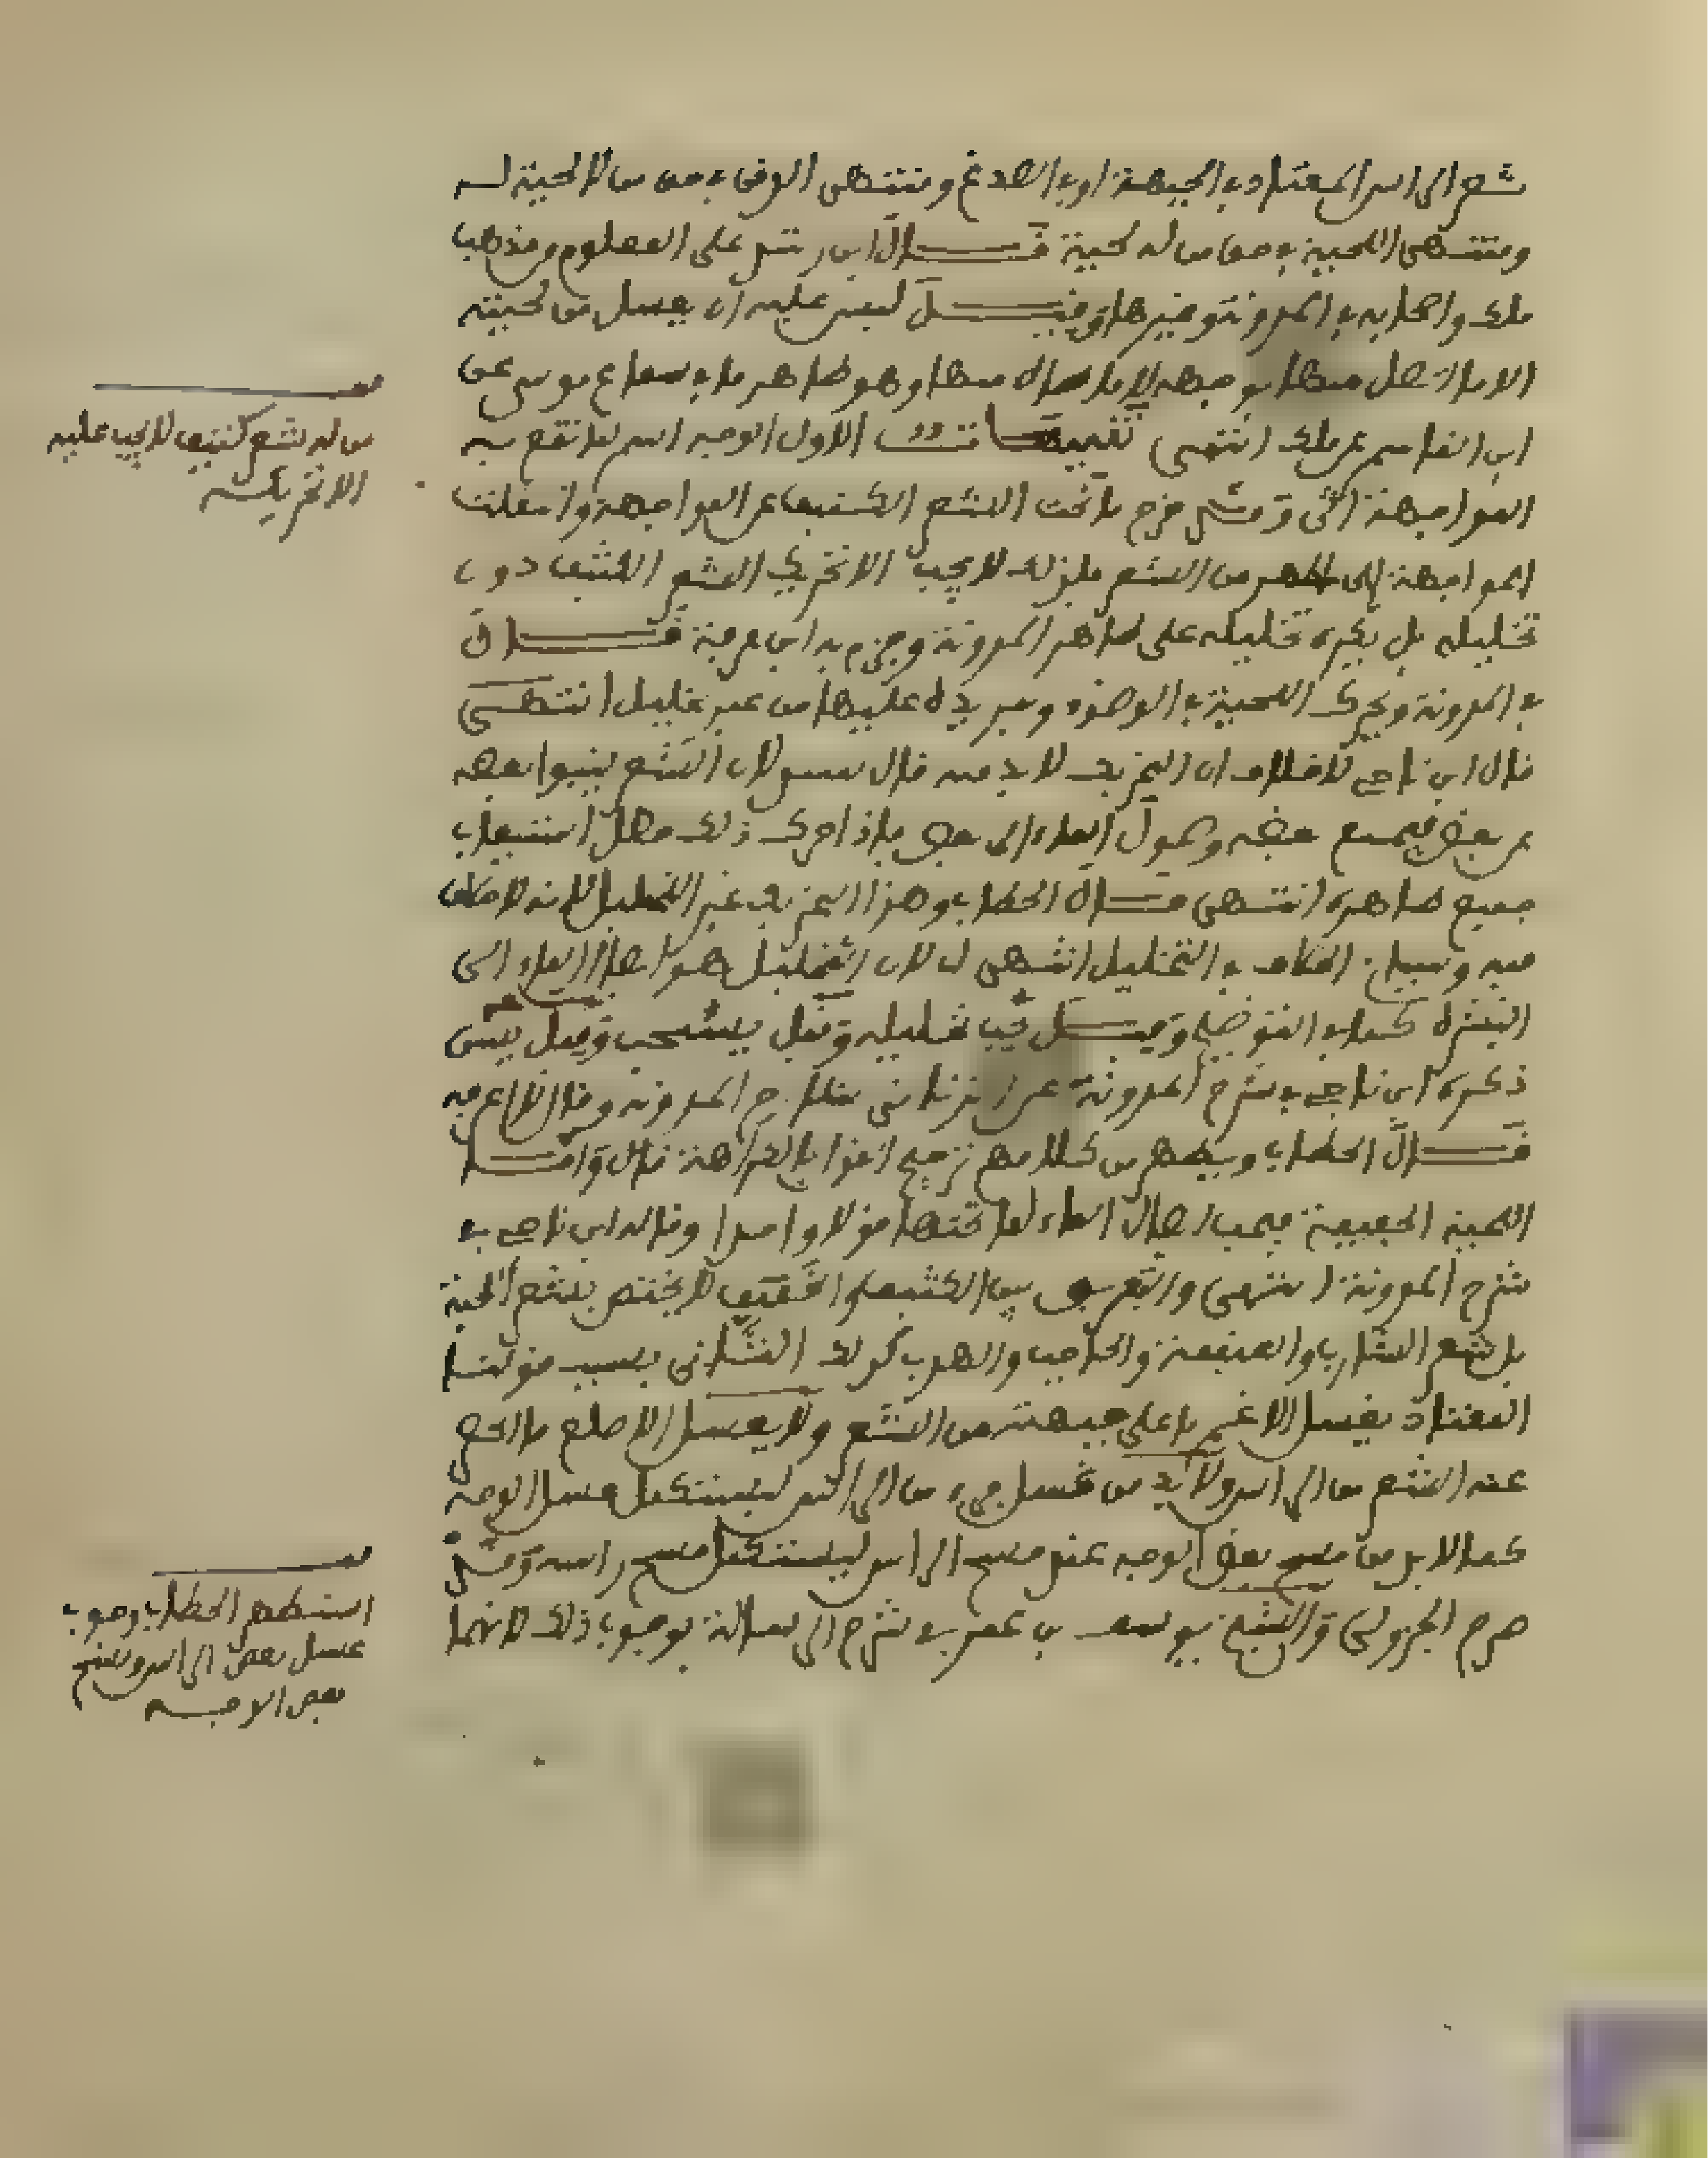 شعر الراس المعتاد في الجبهة او في الصدغ ومنتهى الذقن في من لا لحية له
ومنتهى اللحية في من له لحية قال ابن رشد على المعلوم من مذهب
ملك واصحابه في المدونة وغيرها وقيل ليس عليه ان يغسل من لحيته
الا ما اتصل منها بوجهه لا ما طال منها وهو ظاهر ما في سماع موسى عن
ابن القاسم عن ملك انتهى تنبيهات الاول الوجه اسم لما تقع به
المواجهة خرج ما تحت الشعر الكثيف عن المواجهة وانتقلت
المواجهة الى ما ظهر من الشعر فلذلك لا يجب الا تحريك الشعر الكثيف دون
تخليله بل يكره تخليله على ظاهر المدونة وجزم به ابن عرفة قال
في المدونة ويحرك اللحية في الوضوء ويمر يده عليها من غير تخليل انتهى
قال ابن ناجي لا خلاف ان التحريك لا بد منه قال لان الشعر ينبوا بعضه
عن بعض فيمنع بعضه وصول الماء الى بعض فاذا حرك ذلك حصل استيعاب
جميع ظاهره انتهى قال الحطاب وهذا التحريك غير التخليل لانه لا خلاف
فيه وسياتي الخلاف في التخليل انتهى لان التخليل هو ايصال الماء الى
البشرة كما في التوضيح وقيل يجب تخليله وقيل يستحب وقيل
ذكره ابن ناجي في شرح المدونة عن المدونة وقال لا اعرفه
قال الحطاب ويظهر من كلامهم ترجيح القول بالكراهة قال واما
اللحية الخفيفة فيجب ايصال الماء لما تحتها قولا واحدا وقاله ابن ناجي في
شرح المدونة انتهى والتفريق بين الكثيف والخفيف لا يختص بشعر اللحية
بل شعر الشارب والعنفقة والحاجب والهدب كذلك الثاني بسبب قولنا
المعتاد يغسل الاغم ما على جبهته من الشعر ولا يغسل الاصلع ما انحسر
عنه الشعر من الراس ولا بد من غسل جزء من الراس ليستكمل غسل الوجه
كما لا بد من مسح بعض الوجه عند مسح الراس ليستكمل مسح راسه
صرح الجزولي والشيخ يوسف بن عمر في شرح الرسالة بوجوب ذلك لانهما
من له شعر كثيف لا يجب عليه
الا تحريكه
استظهر الحطاب وجوب
غسل بعض الراس ومسح
بعض الوجه